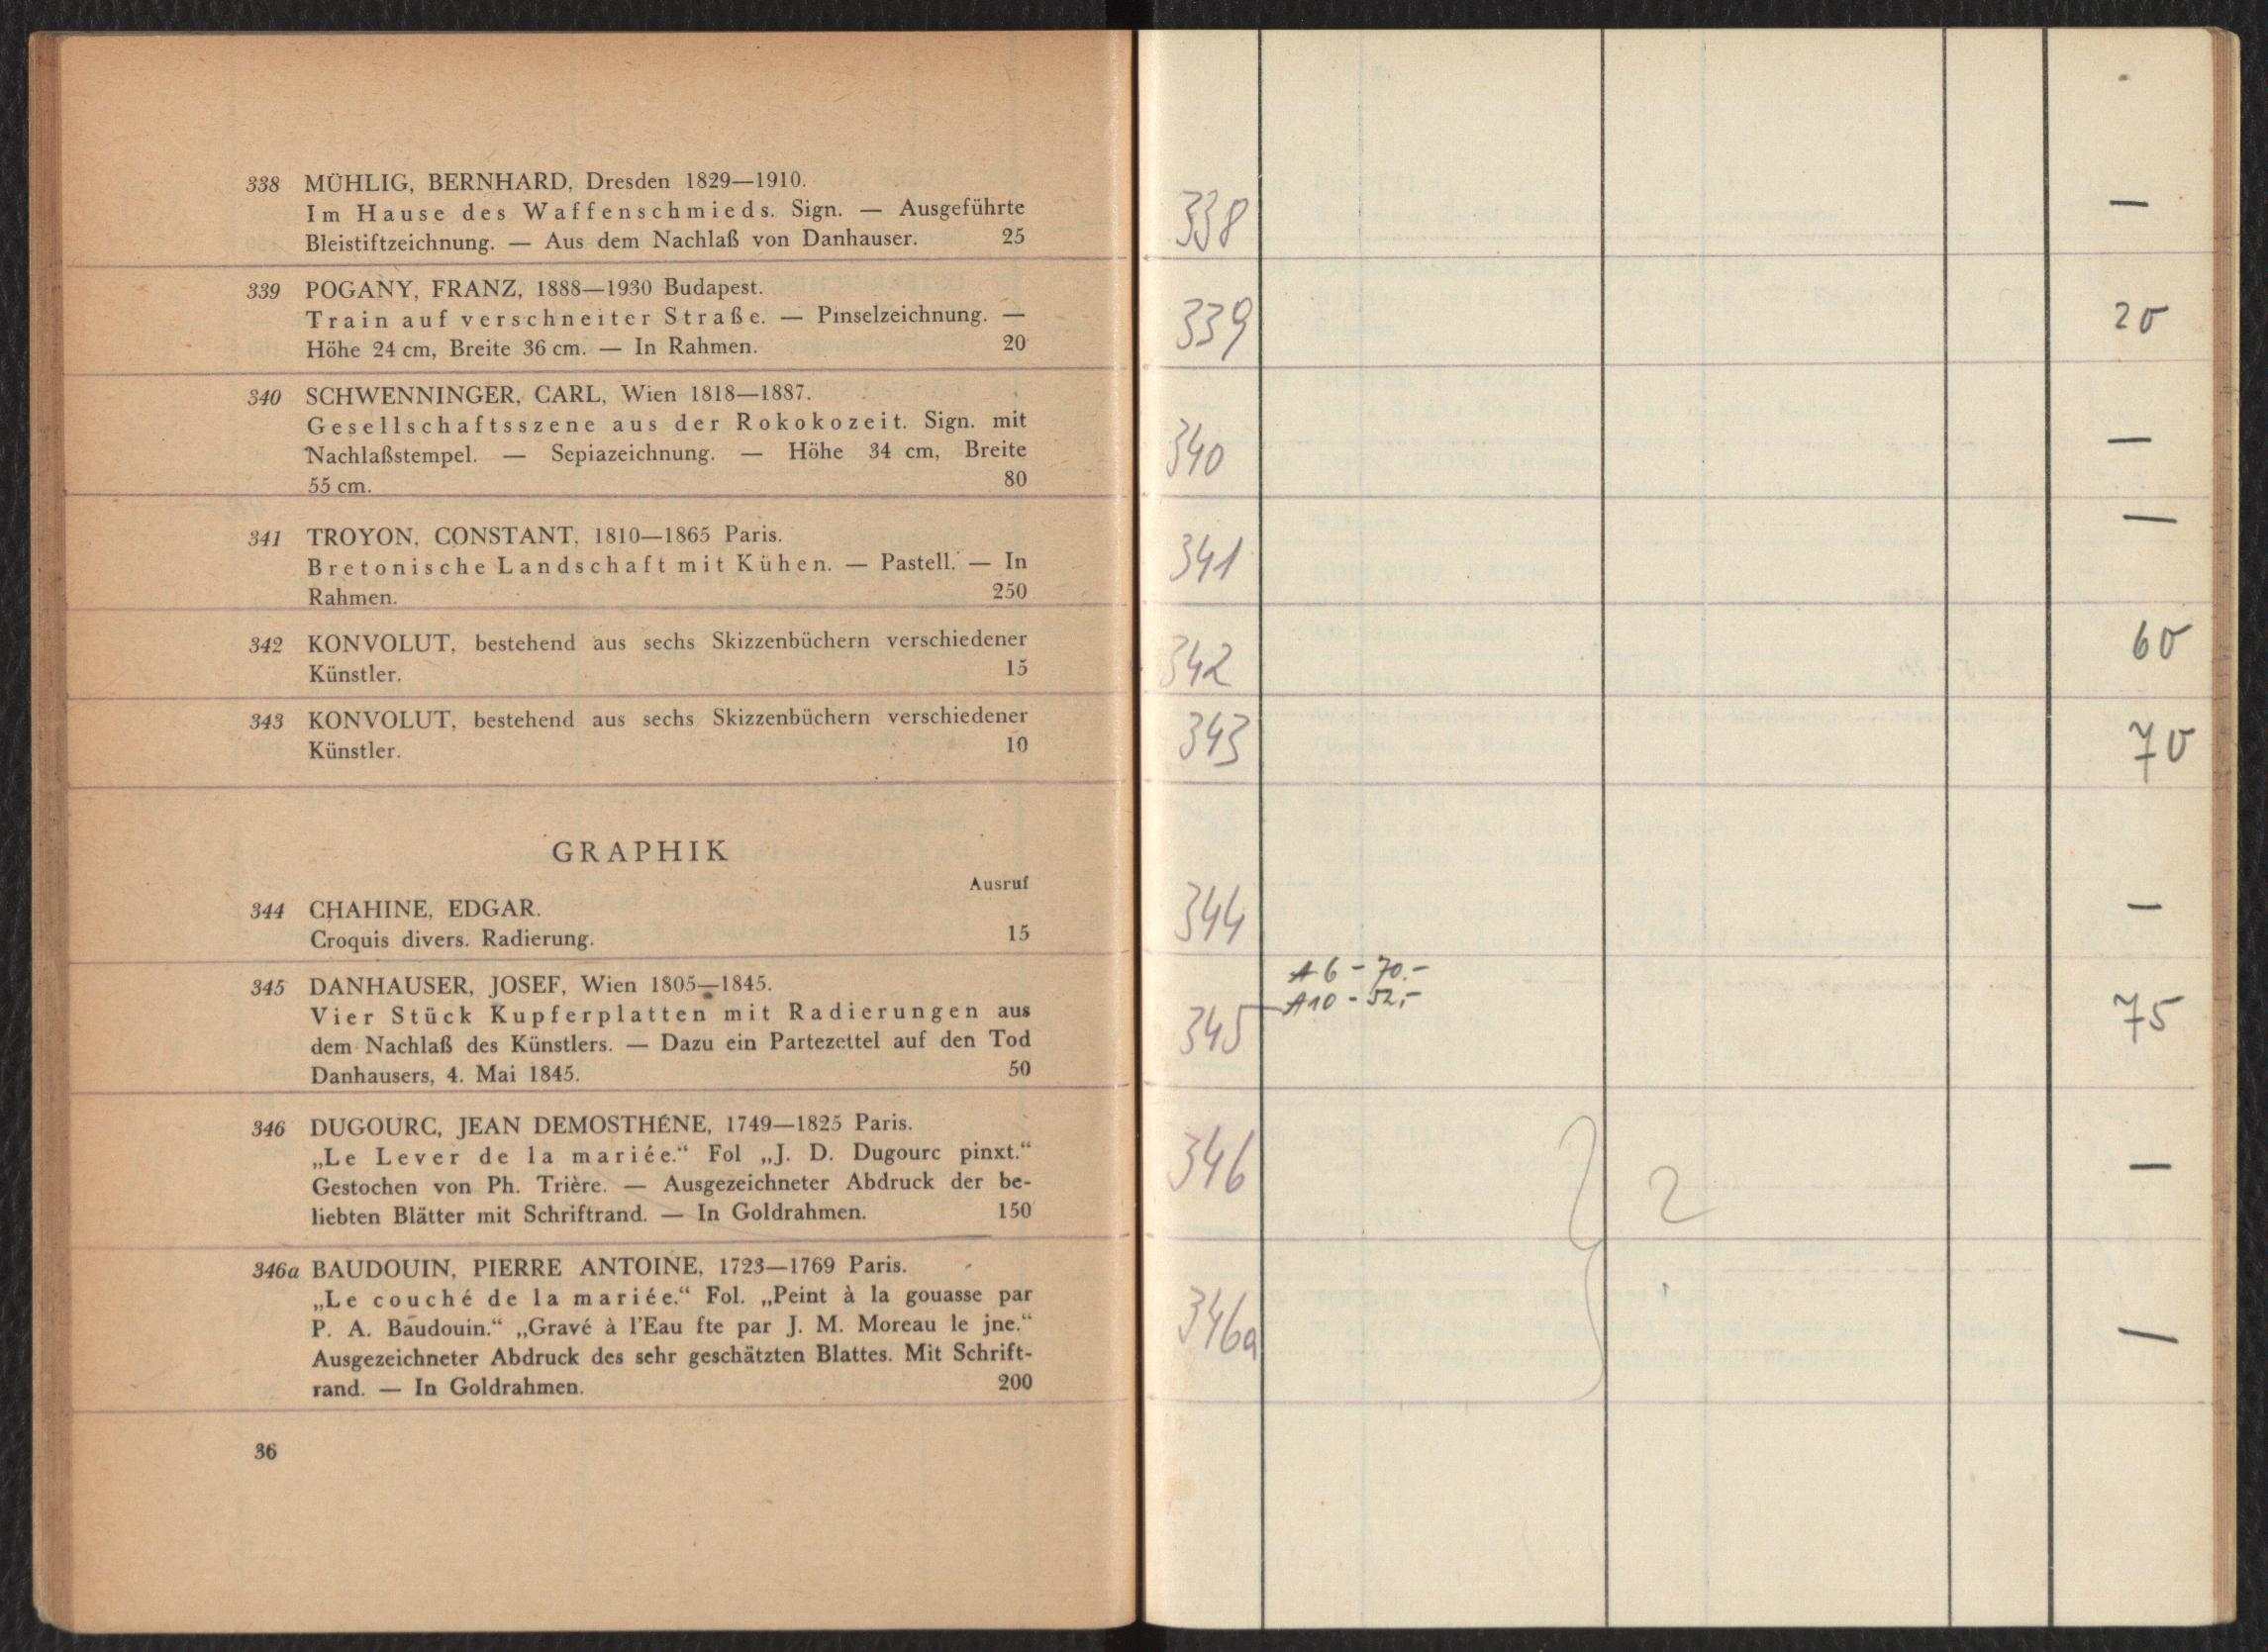 338 MÜHLIG, BERNHARD, Dresden 1829—1910.
Im Hause des Waffenschmieds. Sign. — Ausgeführte
Bleistiftzeichnung. — Aus dem Nachlaß von Danhauser. 25
339 POGANY, FRANZ, 1888—1930 Budapest.
Train auf verschneiter Straße. — Pinselzeichnung. —
Höhe 24 cm, Breite 36 cm. — In Rahmen. 20
340 SCHWENNINGER, CARL, Wien 1818—1887.
Gesellschaftsszene aus der Rokokozeit. Sign. mit
Nachlaßstempel. — Sepiazeichnung. — Höhe 34 cm, Breite
55 cm. 80
341 TROYON, CONSTANT, 1810—1865 Paris.
Bretonische Landschaft mit Kühen. — Pastell. — In
Rahmen. 250
342 KONVOLUT, bestehend aus sechs Skizzenbüchern verschiedener
Künstler. 15
343 KONVOLUT, bestehend aus sechs Skizzenbüchern verschiedener
Künstler. 10
GRAPHIK
Ausruf
344 CHAHINE, EDGAR.
Croquis divers. Radierung. 15
345 DANHAUSER, JOSEF, Wien 1805—1845.
Vier Stück Kupferplatten mit Radierungen aus
dem Nachlaß des Künstlers. — Dazu ein Partezettel auf den Tod
Danhausers, 4. Mai 1845. 50
346 DUGOURC, JEAN DEMOSTHÉNE, 1749—1825 Paris.
„Le Lever de la mariée.“ Fol „J. D. Dugourc pinxt.“
Gestochen von Ph. Trière. — Ausgezeichneter Abdruck der be-
liebten Blätter mit Schriftrand. — In Goldrahmen. 150
346a BAUDOUIN, PIERRE ANTOINE, 1723—1769 Paris.
„Le couché de la mariée.“ Fol. „Peint à la gouasse par
P. A. Baudouin.“ „Gravé à l'Eau fte par J. M. Moreau le jne.“
Ausgezeichneter Abdruck des sehr geschätzten Blattes. Mit Schrift-
rand. — In Goldrahmen. 200
36
338 —
339 20
340 —
341 —
342 60
343 70
344 —
A6 - 70.-
A10 - 52,-
345 75
346 2 —
346a —